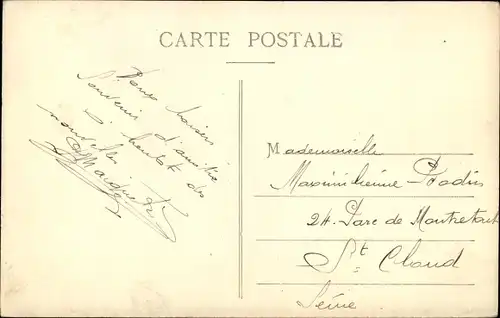 CARTE POSTALE
Doux baisers
Souvenir d'amitié
à bientôt des
nouvelles
Mademoiselle
Maximilienne
24 Parc de Montretout
St Cloud
Seine